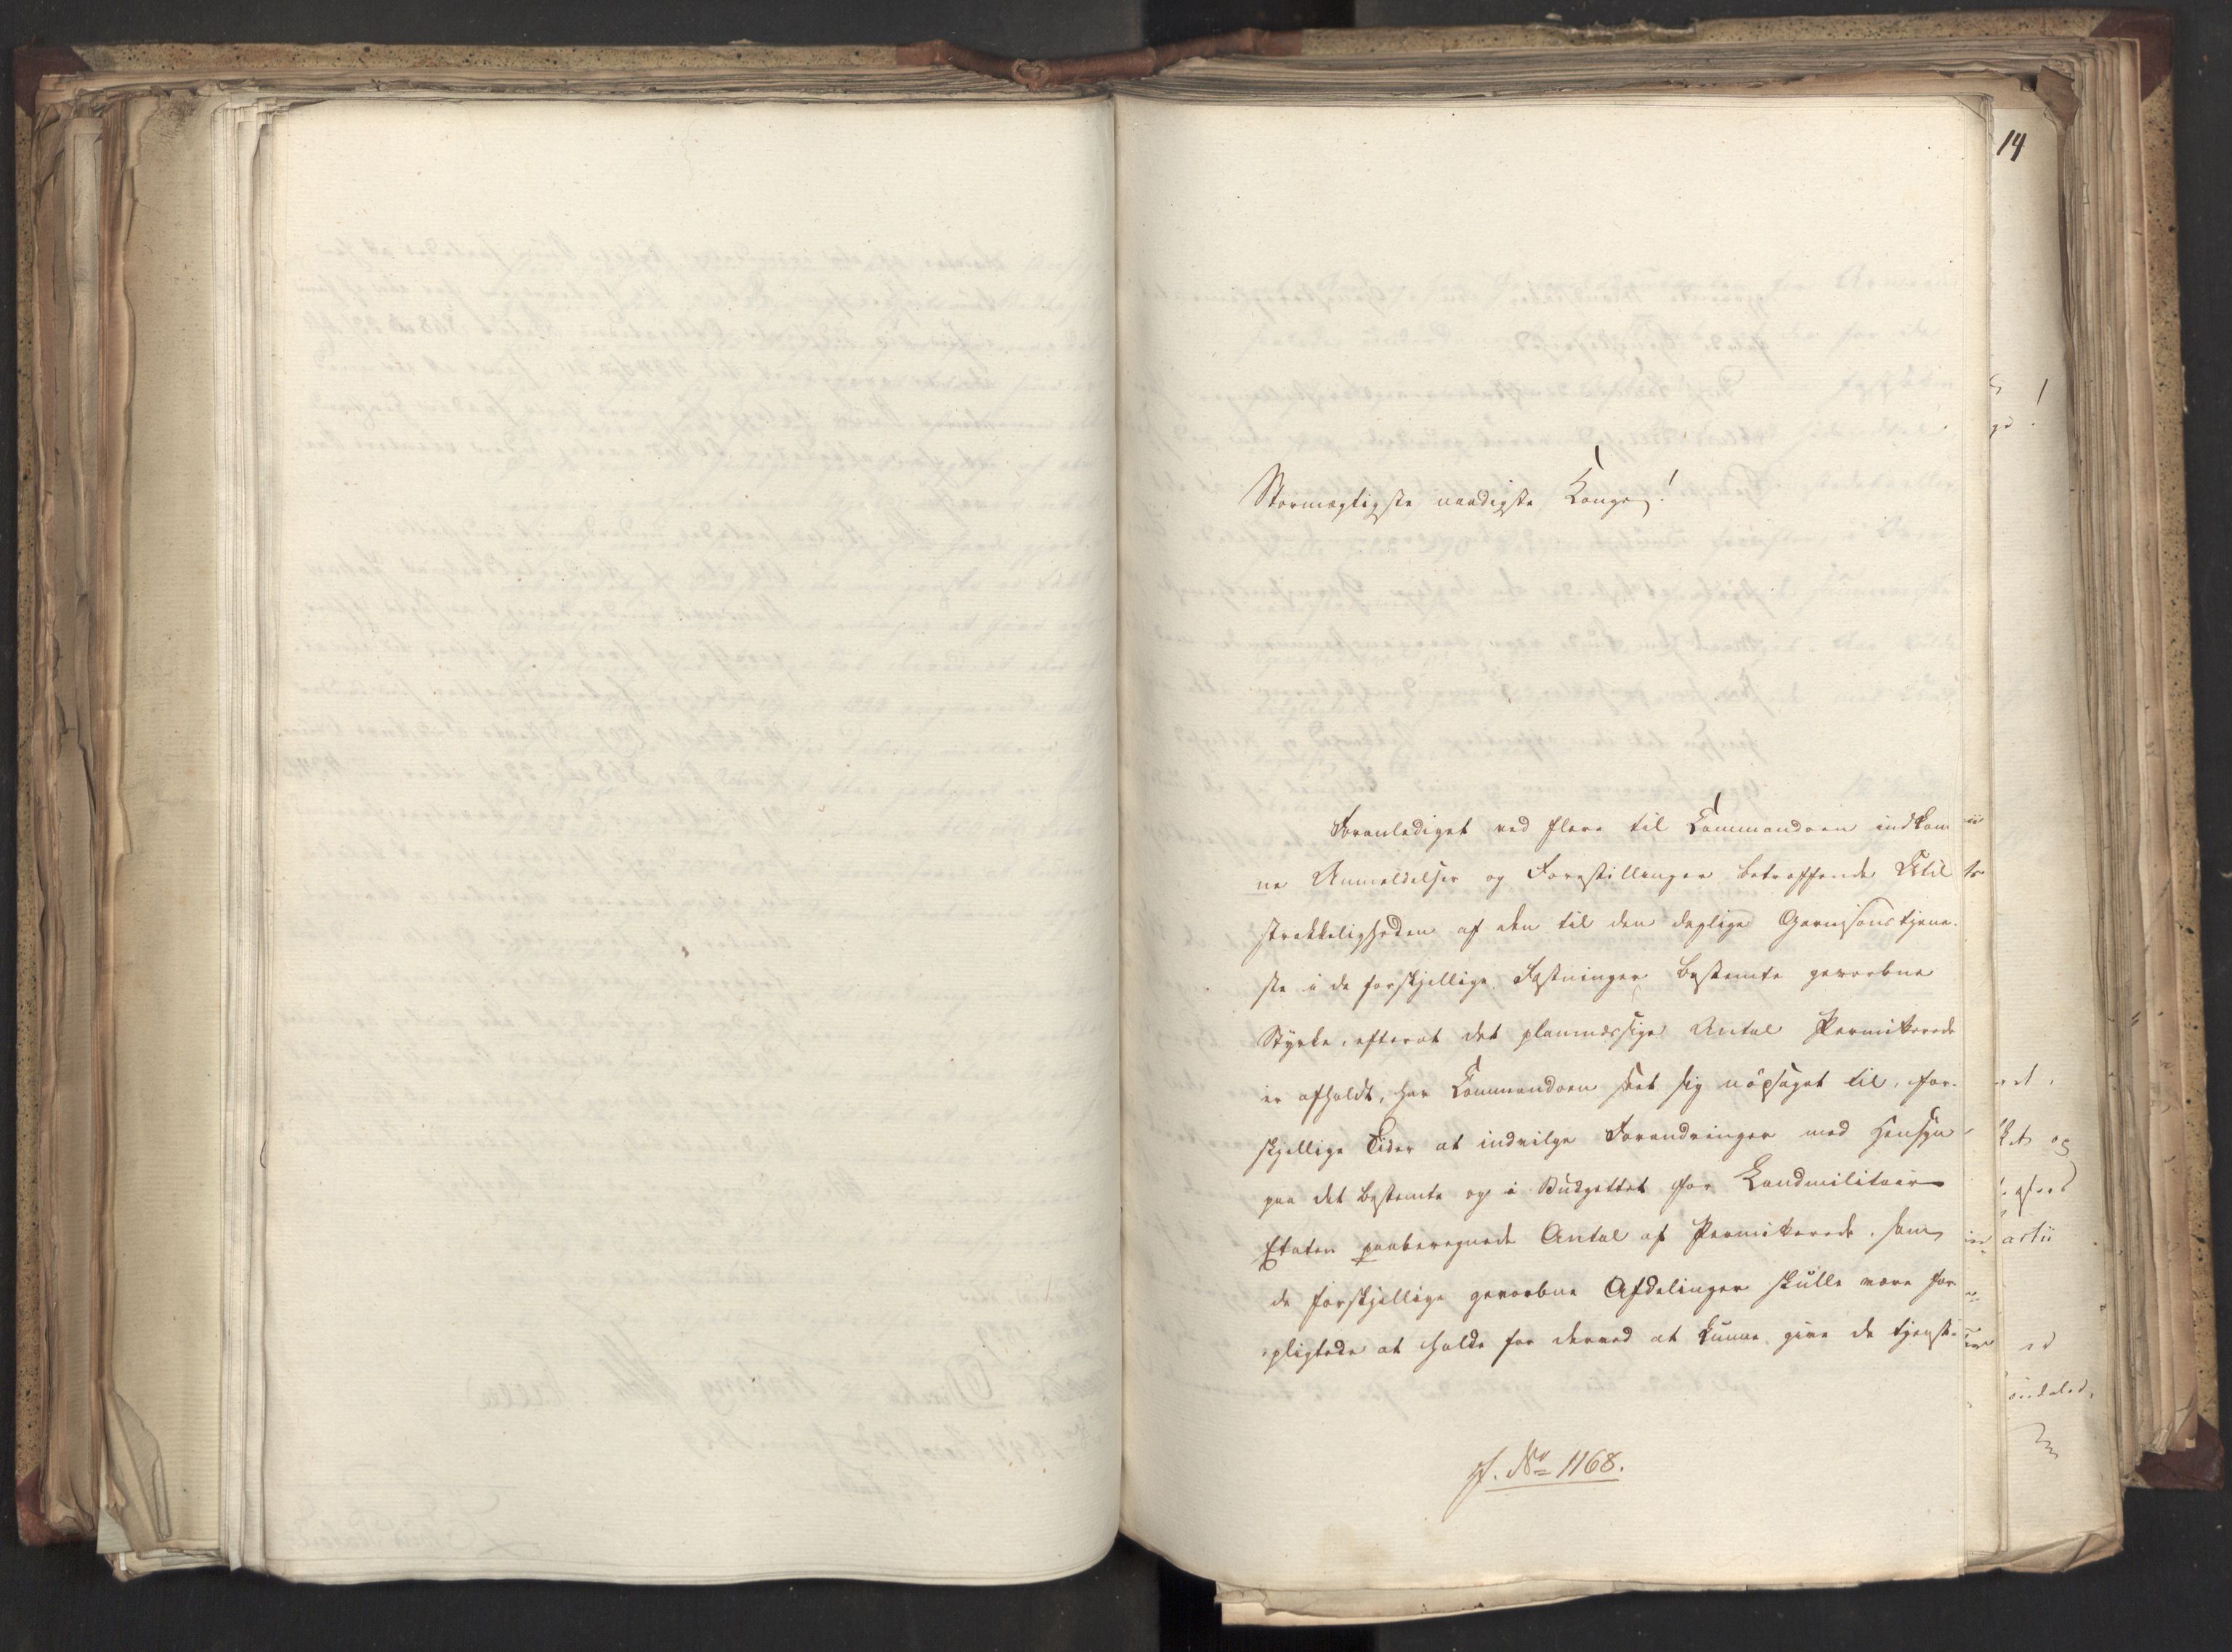 14
Stormægtigste naadigste Konge!
Foranlediget ved flere til Commandoen indkom
ne Anmeldelser og Forestillinger betreffende Util
strekkeligheden af den til den daglige Garnisonstjene-
ste i de forskjellige Fæstninger bestemte gevorbne
Styrke, efterat det planmæssige Antal Permitterede
er afholdt, har Commandoen seet sig nödsaget til, for-
skjellige Tider at indvilge Forandringer med Hensyn
paa det bestemte og i Budgettet for Landmilitair
Etaten paaberegnede Antal af Permitterede, som
de forskjellige gevorbne Afdelinger skulle være for
pligtede at holde for derved at kunne give de tjenst-
J. No 1168.